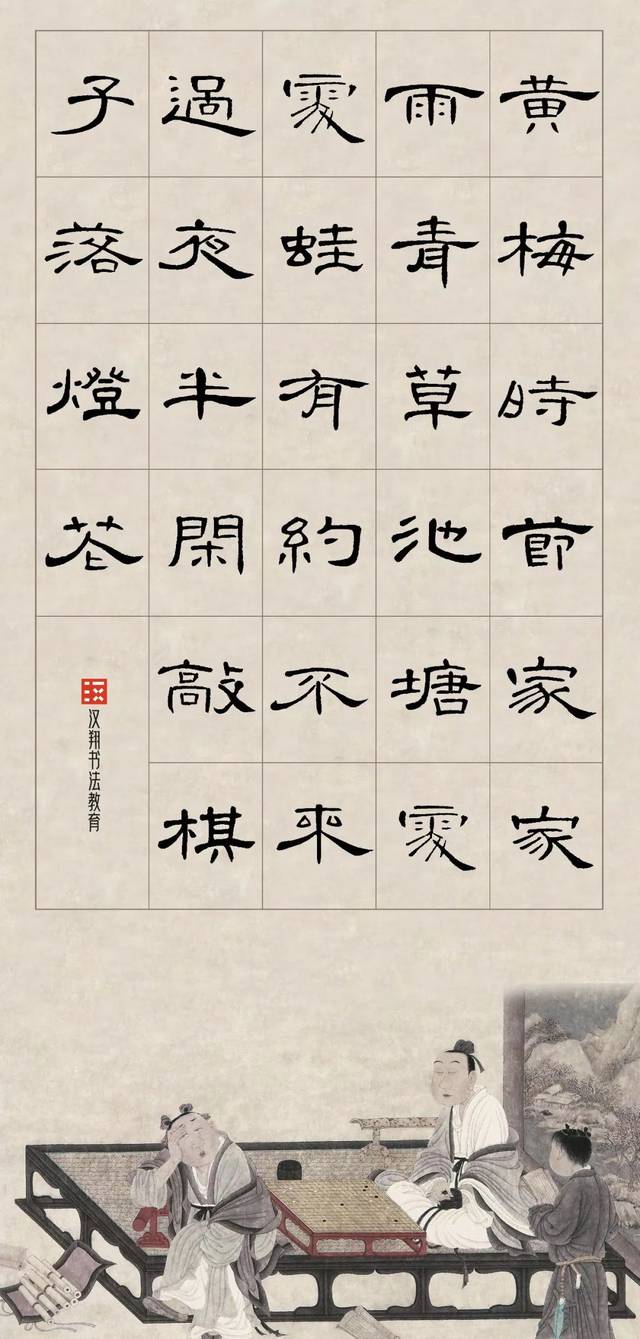 黄梅時節家家
雨青草池塘處
處蛙有約不來
過夜半閑敲棋
子落燈花
汉翔书法教育